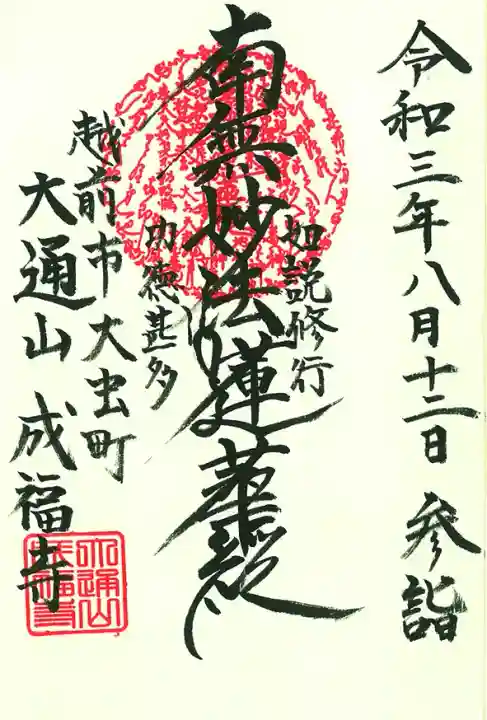 令和三年八月十二日 参詣
如説修行
南無妙法蓮華経
功徳甚多
越前市大虫町
大通山 成福寺
大通山
成福寺